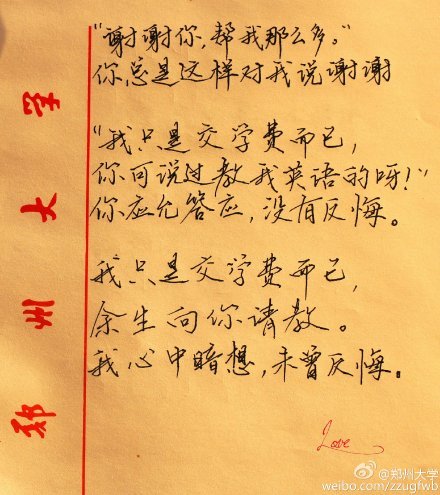 “谢谢你，帮我那么多。”
你总是这样对我说谢谢
“我只是交学费而已，
你可说过教我英语的呀！”
你应允答应，没有反悔。
我只是交学费而已，
余生向你请教。
我心中暗想，未曾反悔。
Love
郑州大学
@郑州大学
weibo.com/zzugfwb